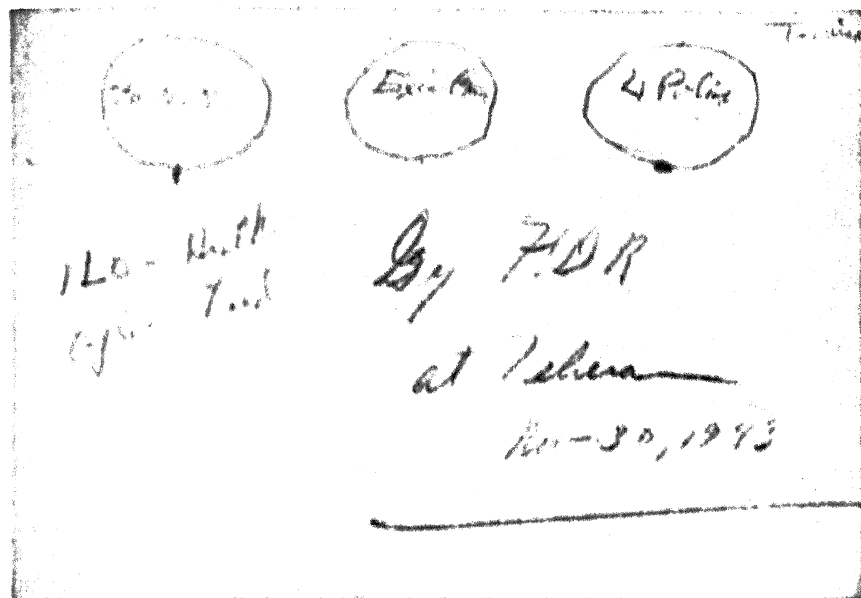 40 U.N. Exec. Com 4 Police
ILO - Health
Agric. Food
By F.D R
at Teheran
Nov - 30, 1943